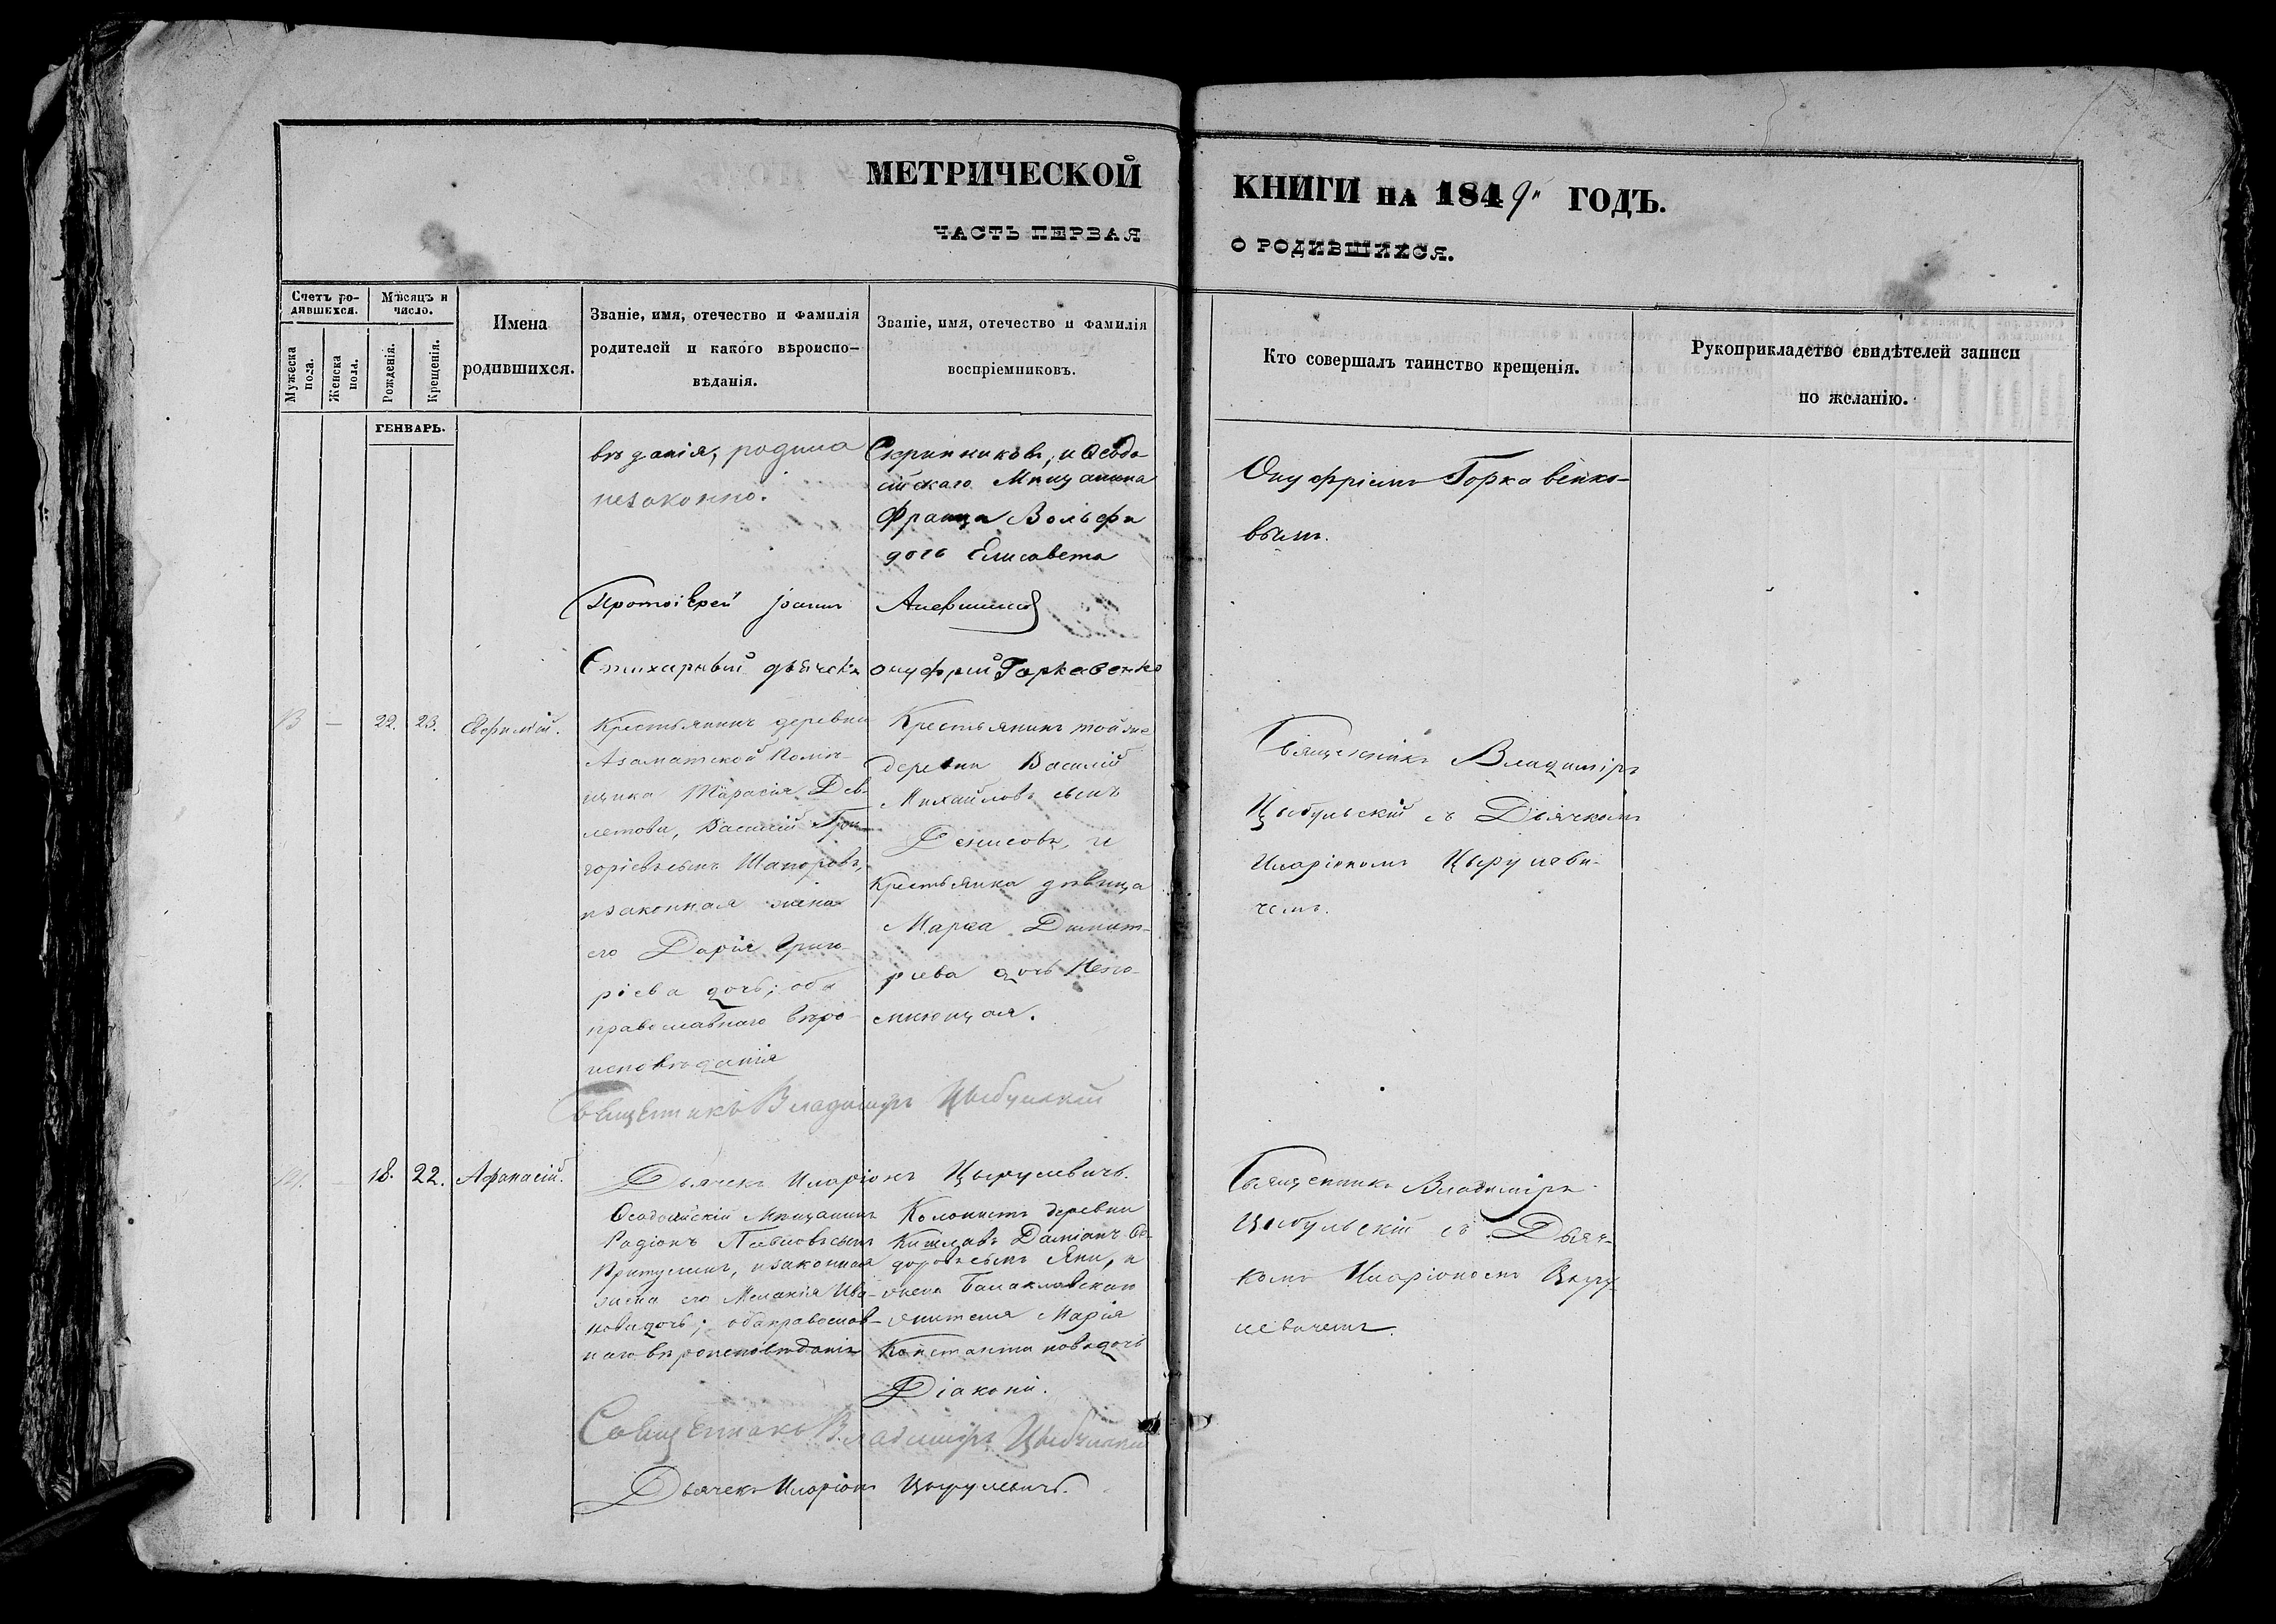 МЕТРИЧЕСКОЙ
КНИГИ НА 1849й ГОДЪ.
ЧАСТЬ ПЕРВАЯ
О РОДИВШИХСЯ.
Счетъ ро-
дившихся.
Мужеска
пола.
Женска
пола.
Мѣсяцъ и
число.
Рожденія.
Крещенія.
Имена
родившихся.
Званіе, имя, отечество и фамилія
родителей и какого вѣроиспо-
вѣданія.
Званіе, имя, отечество и фамилія
воспріемниковъ.
Кто совершалъ таинство крещенія.
Рукоприкладство свидѣтелей записи
по желанію.
ГЕНВАРЬ.
вѣданія, родила
незаконно.
Скрипниковъ, и Ѳеодо-
сійскаго Мѣщанина
Франца Вольфа
дочь Елисавета
Онуфріемъ Горкавенко-
вымъ.
Протоіерей Іоаннъ
Стихарный дьячекъ Онуфрій Горкавенко
13 — 22. 23. Евфимій.
Крестьянинъ деревни
Азаматской Помѣ-
щика Тарасія Дев-
летова, Василій Гри-
горіевъ сынъ Шапоровъ,
и законная жена
его Дарія Григо-
ріева дочь; оба
православнаго вѣро-
исповѣданія
Крестьянинъ той же
деревни Василій
Михайловъ сынъ
Денисовъ, и
Крестьянка дѣвица
Марѳа Димит-
ріева дочь
Священникъ Владиміръ
Цыбульскій съ Дьячкомъ
Иларіономъ Цырулеви-
чемъ.
Священникъ Владимиръ Цыбульскій
Дьячекъ Иларіонъ Цырулевичъ.
14. — 18. 22. Афанасій.
Ѳеодосійскій Мѣщанинъ
Радіонъ сынъ
Притулинъ, и законная
жена его Меланія Ива-
нова дочь; оба православ-
наго вѣроисповѣданія
Колонистъ деревни
Кишлавъ Даміанъ Ѳе-
доровъ сынъ Яни, и
жена Балаклавскаго
жителя Марія
Константинова дочь
Діакони.
Священникъ Владиміръ
Цыбульскій съ Дьяч-
комъ Иларіономъ Цыру-
левичемъ.
Священникъ Владимиръ Цыбульскій
Дьячекъ Иларіонъ Цырулевичъ.